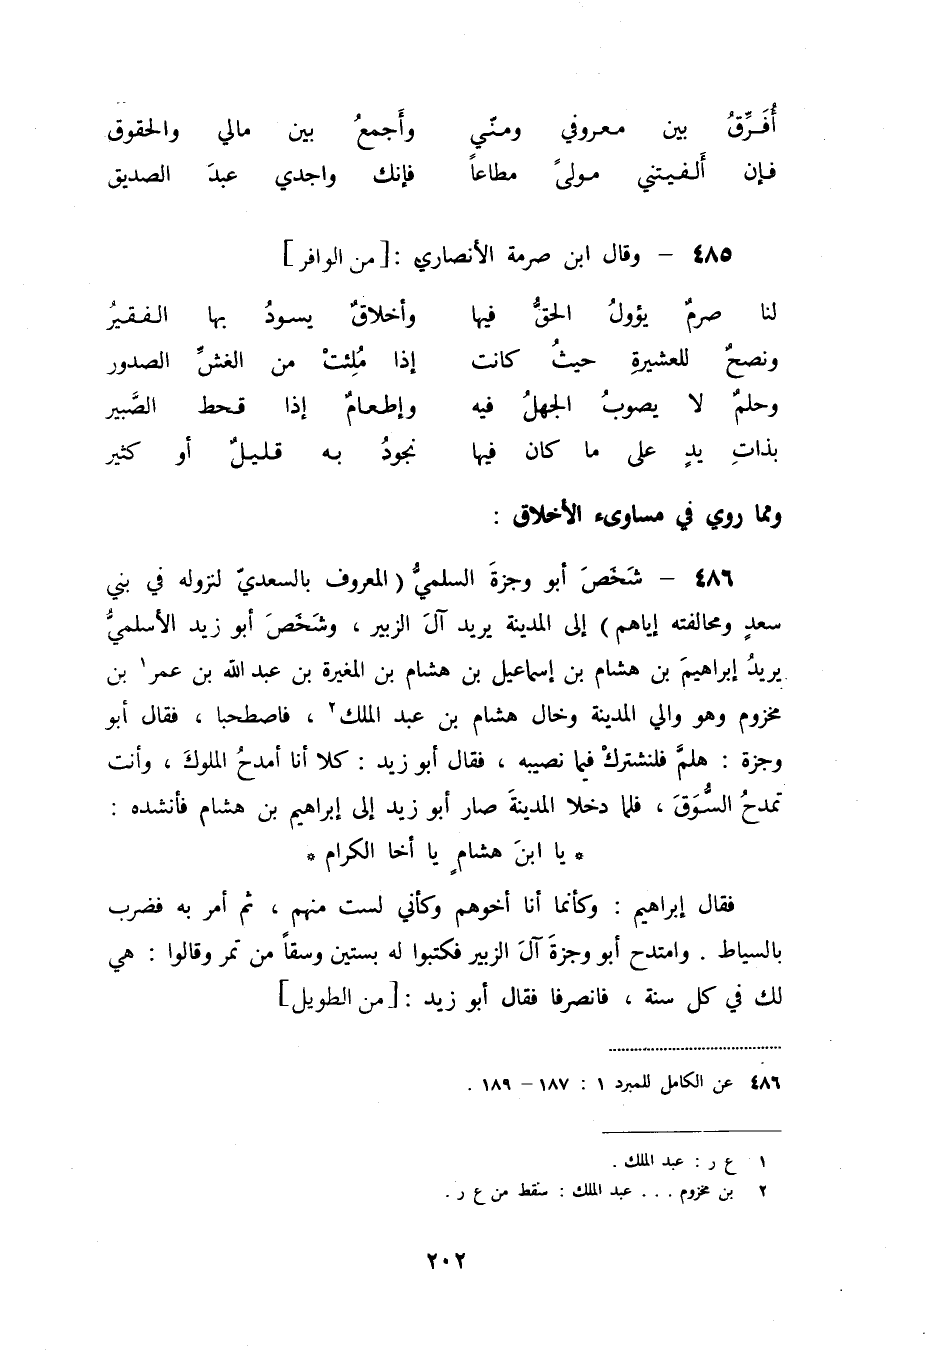 أُفَرِّقُ بين معروفي ومنّي وأَجمعُ بين مالي والحقوق
فإن أَلفيتني مولىً مطاعاً فإنك واجدي عبدَ الصديق
٤٨٥ – وقال ابن صرمة الأنصاري : [من الوافر]
لنا صرمٌ يؤولُ الحقُّ فيها وأخلاقٌ يسودُ بها الفقيرُ
ونصحٌ للعشيرةِ حيثُ كانت إذا مُلِئتْ من الغشِّ الصدور
وحلمٌ لا يصوبُ الجهلُ فيه وإطعامٌ إذا قحط الصَّبير
بذاتِ يدٍ على ما كان فيها نجودُ به قليلٌ أو كثير
ومما روي في مساوىء الأخلاق :
٤٨٦ – شَخَصَ أبو وجزةَ السلميُّ ( المعروف بالسعديّ لنزوله في بني
سعدٍ ومحالفته إياهم ) إلى المدينة يريد آلَ الزبير ، وشَخَصَ أبو زيد الأسلميُّ
يريدُ إبراهيمَ بن هشام بن إسماعيل بن هشام بن المغيرة بن عبد الله بن عمر١ بن
مخزوم وهو والي المدينة وخال هشام بن عبد الملك٢ ، فاصطحبا ، فقال أبو
وجزة : هلمَّ فلنشتركْ فيما نصيبه ، فقال أبو زيد : كلا أنا أمدحُ الملوكَ ، وأنت
تمدحُ السُّوَقَ ، فلما دخلا المدينةَ صار أبو زيد إلى إبراهيم بن هشام فأنشده :
* يا ابنَ هشامٍ يا أخا الكرام *
فقال إبراهيم : وكأنما أنا أخوهم وكأني لست منهم ، ثم أمر به فضرب
بالسياط . وامتدح أبو وجزةَ آلَ الزبير فكتبوا له بستين وسقاً من تمر وقالوا : هي
لك في كل سنة ، فانصرفا فقال أبو زيد : [من الطويل]
٤٨٦ عن الكامل للمبرد ١ : ١٨٧ – ١٨٩ .
١ ع ر : عبد الملك .
٢ بن مخزوم . . . عبد الملك : سقط من ع ر .
٢٠٢